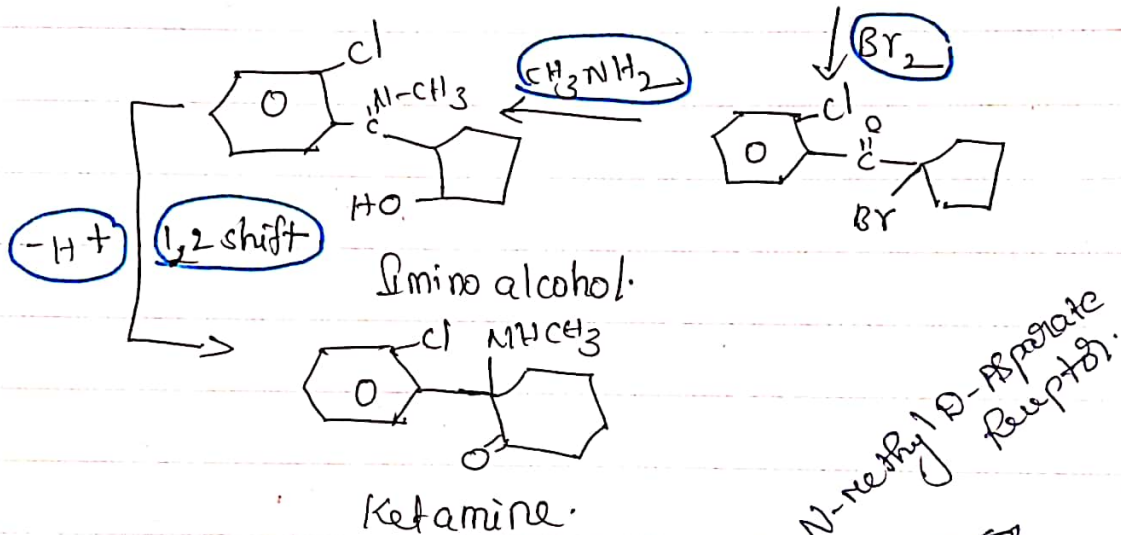 Cl
O
C
N-CH3
HO
CH3NH2
Br2
Cl
O
O
C
Br
-H+
1,2 shift
Imino alcohol.
Cl NHCH3
O
O
Ketamine.
N-methyl D-Asparate
Receptor.